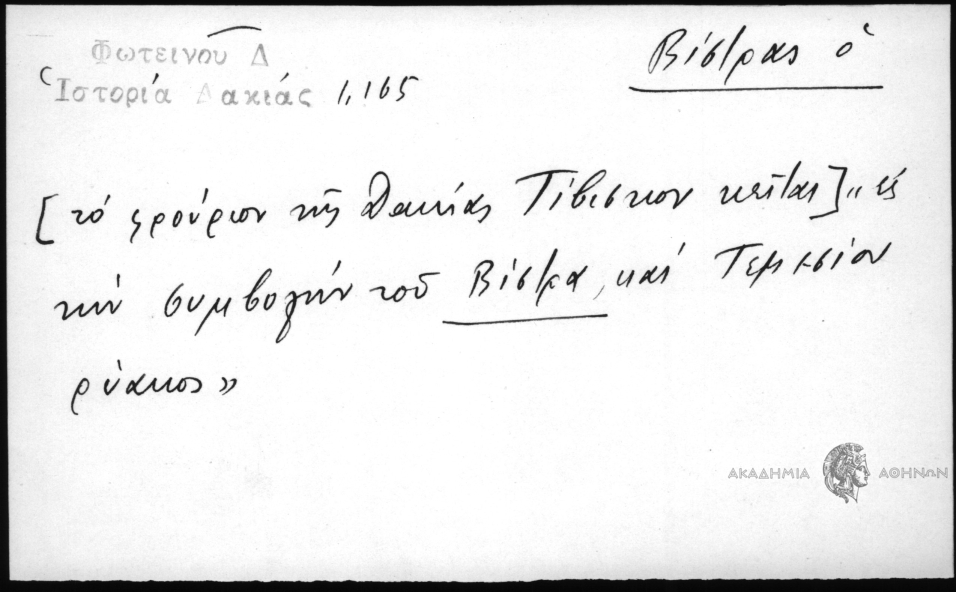 Φωτεινού Δ
Ἱστορία Δακιάς 1,165
Βίστρας ὁ
[τό φρούριον τῆς Δακίας Τίβισκον κεῖται] „ εἰς
τήν συμβολήν τοῦ Βίστρα, καί Τεμεσίου
ρύακος»
ΑΚΑΔΗΜΙΑ ΑΘΗΝΩΝ